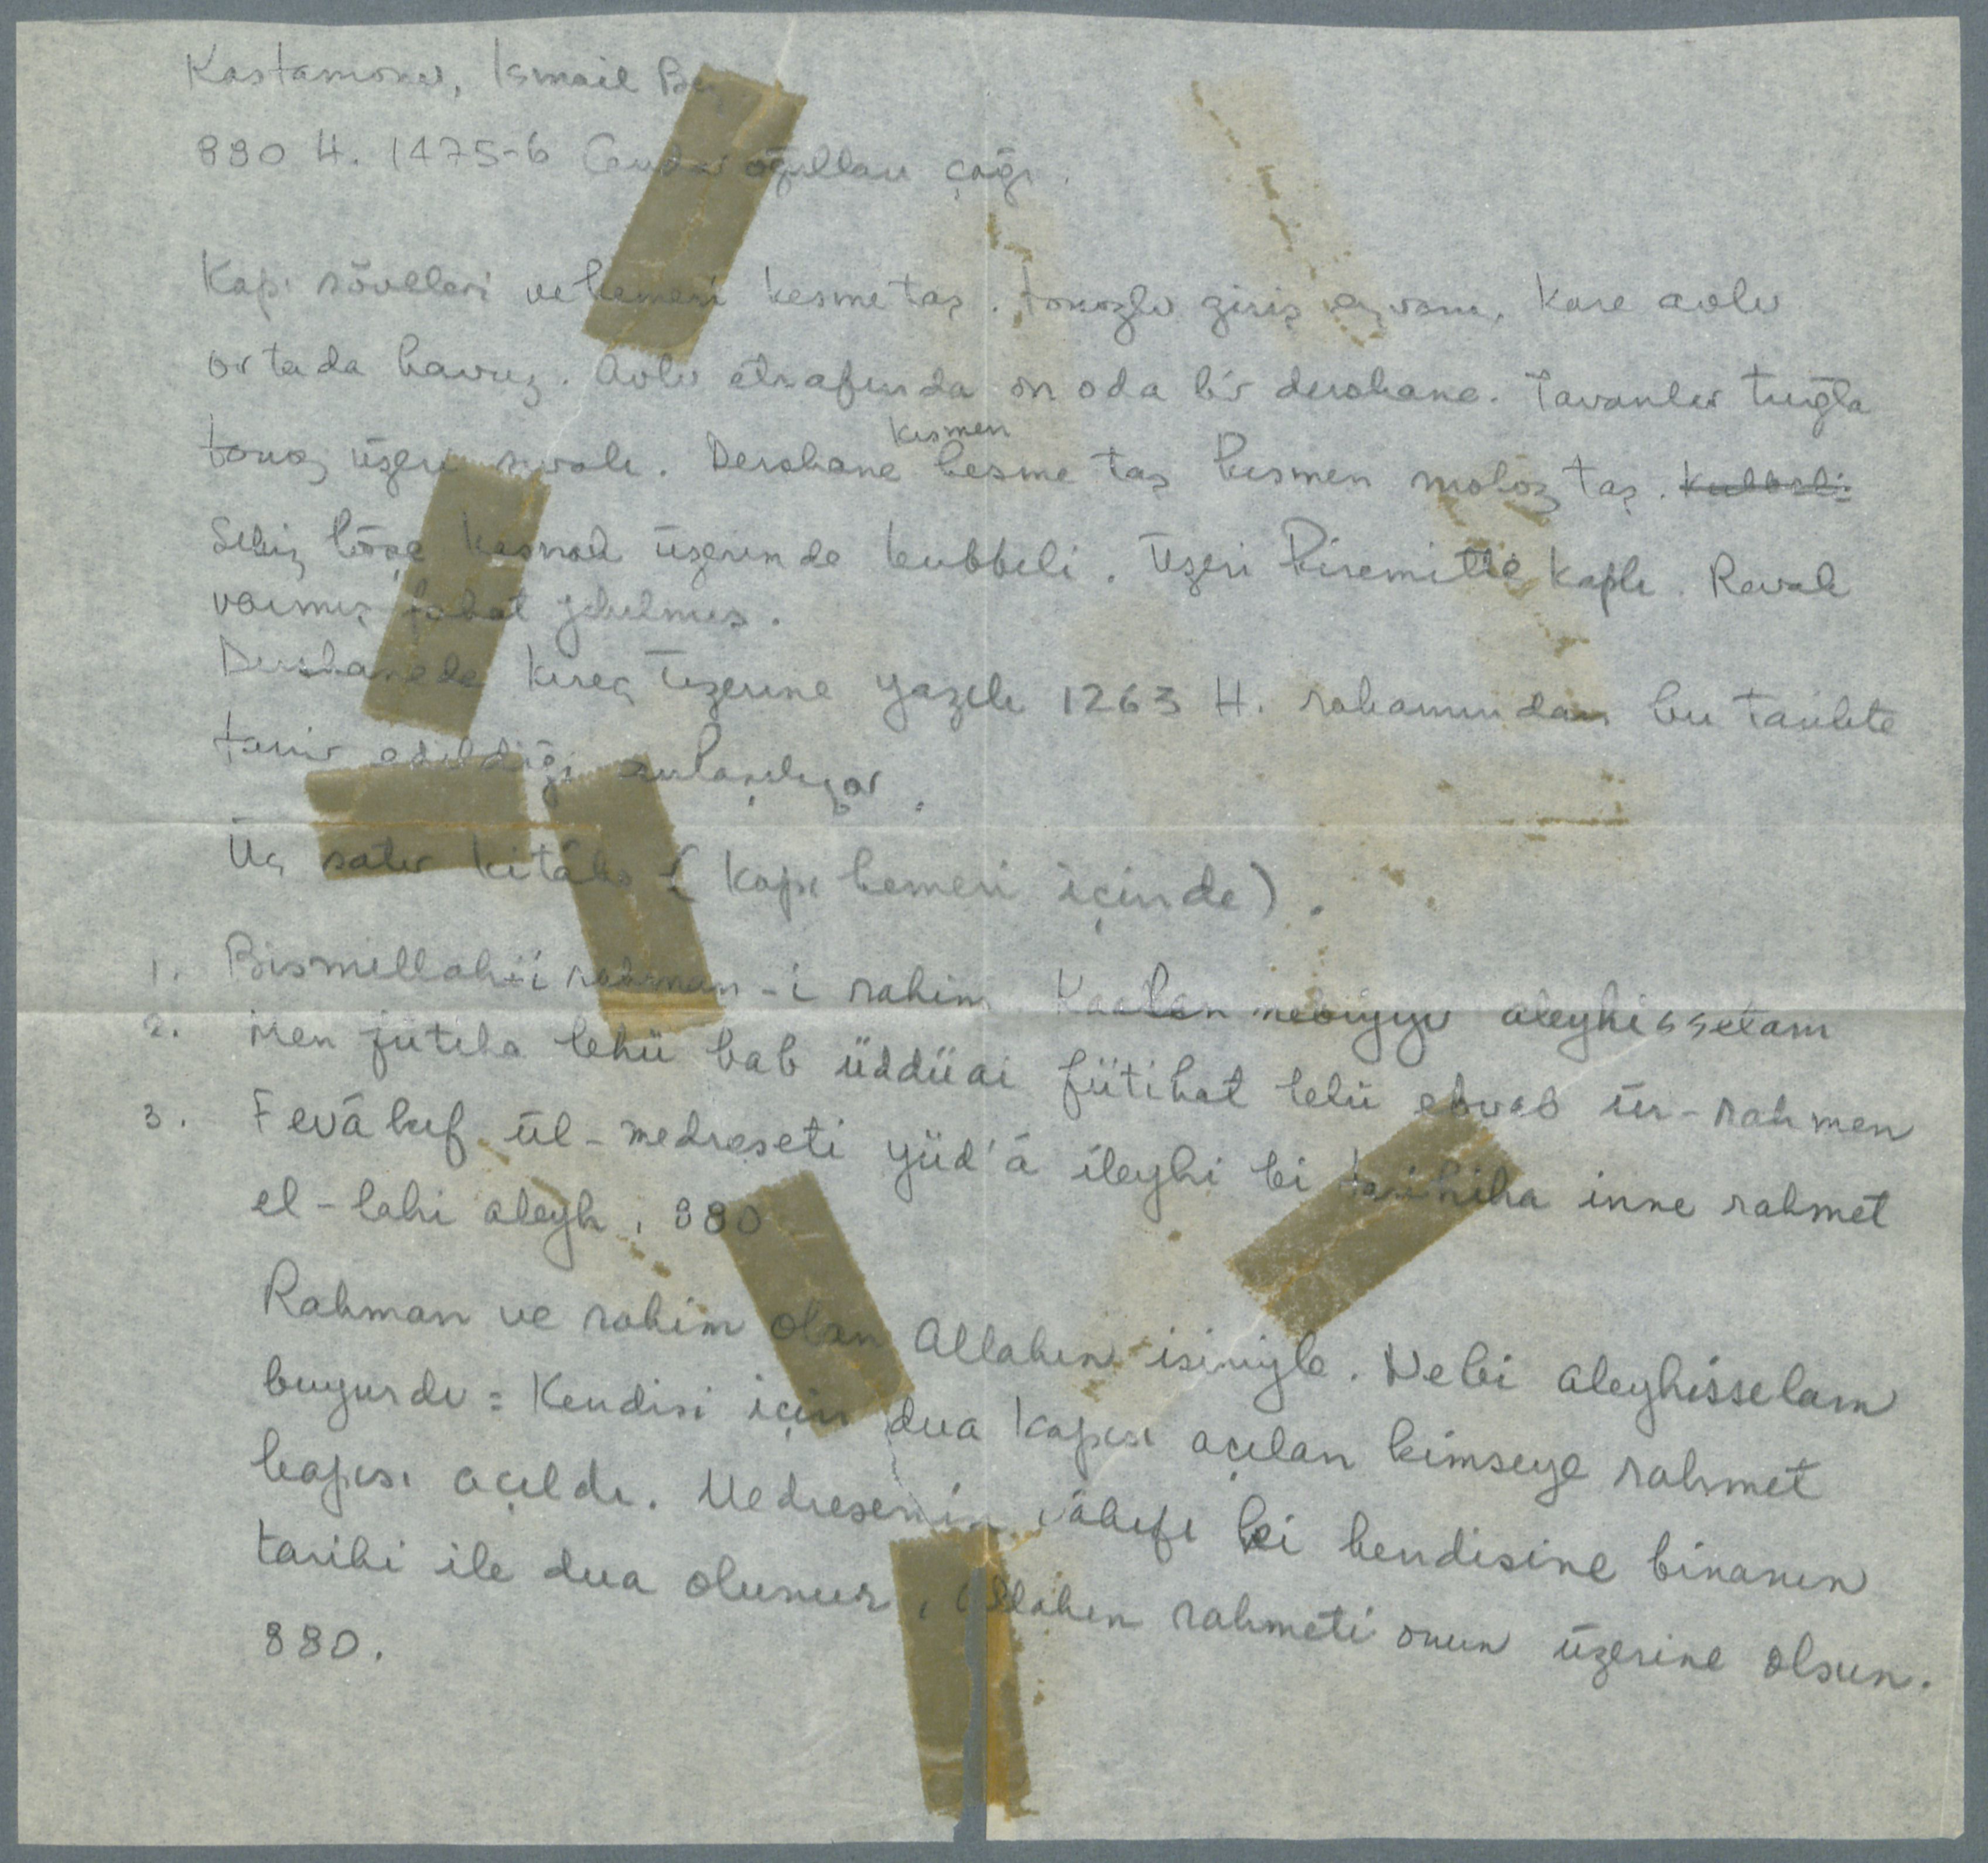 Kastamonu, Ismail Bey
880 H. 1475-6 Candar oğulları çağı.
Kapı söveleri ve kemeri kesme taş. tonozlu giriş eyvanı, Kare avlu
ortada havuz. Avlu etrafında on oda bir dershane. Tavanlar tuğla
tonoz üzeri sıvalı. Dershane kısmen kesme taş kısmen moloz taş. Kubbeli
Sekiz köşe kasnak üzerinde kubbeli. Üzeri kiremitle kaplı. Revak
varmış fakat yıkılmış.
Dershanede kireç üzerine yazılı 1263 H. rakamından bu tarihte
tamir edildiği anlaşılıyor.
Üç satır kitâbe (Kapı kemeri içinde).
1. Bismillah-i rahman-i rahim Kaalen nebiyyu aleyhisselam
2. Men fütiha lehü bab üddüai fütihat lehü ebvab ür-rahmen
3. Fevâkıf ül-medreseti yüd'â ileyhi bi tarihiha inne rahmet
el-lahi aleyh, 880
Rahman ve rahim olan Allahın isimiyle. Nebi aleyhisselam
buyurdu: Kendisi için dua kapısı açılan kimseye rahmet
kapısı açıldı. Medresenin vâkıfı ki kendisine binanın
tarihi ile dua olunur, Allahın rahmeti onun üzerine olsun.
880.